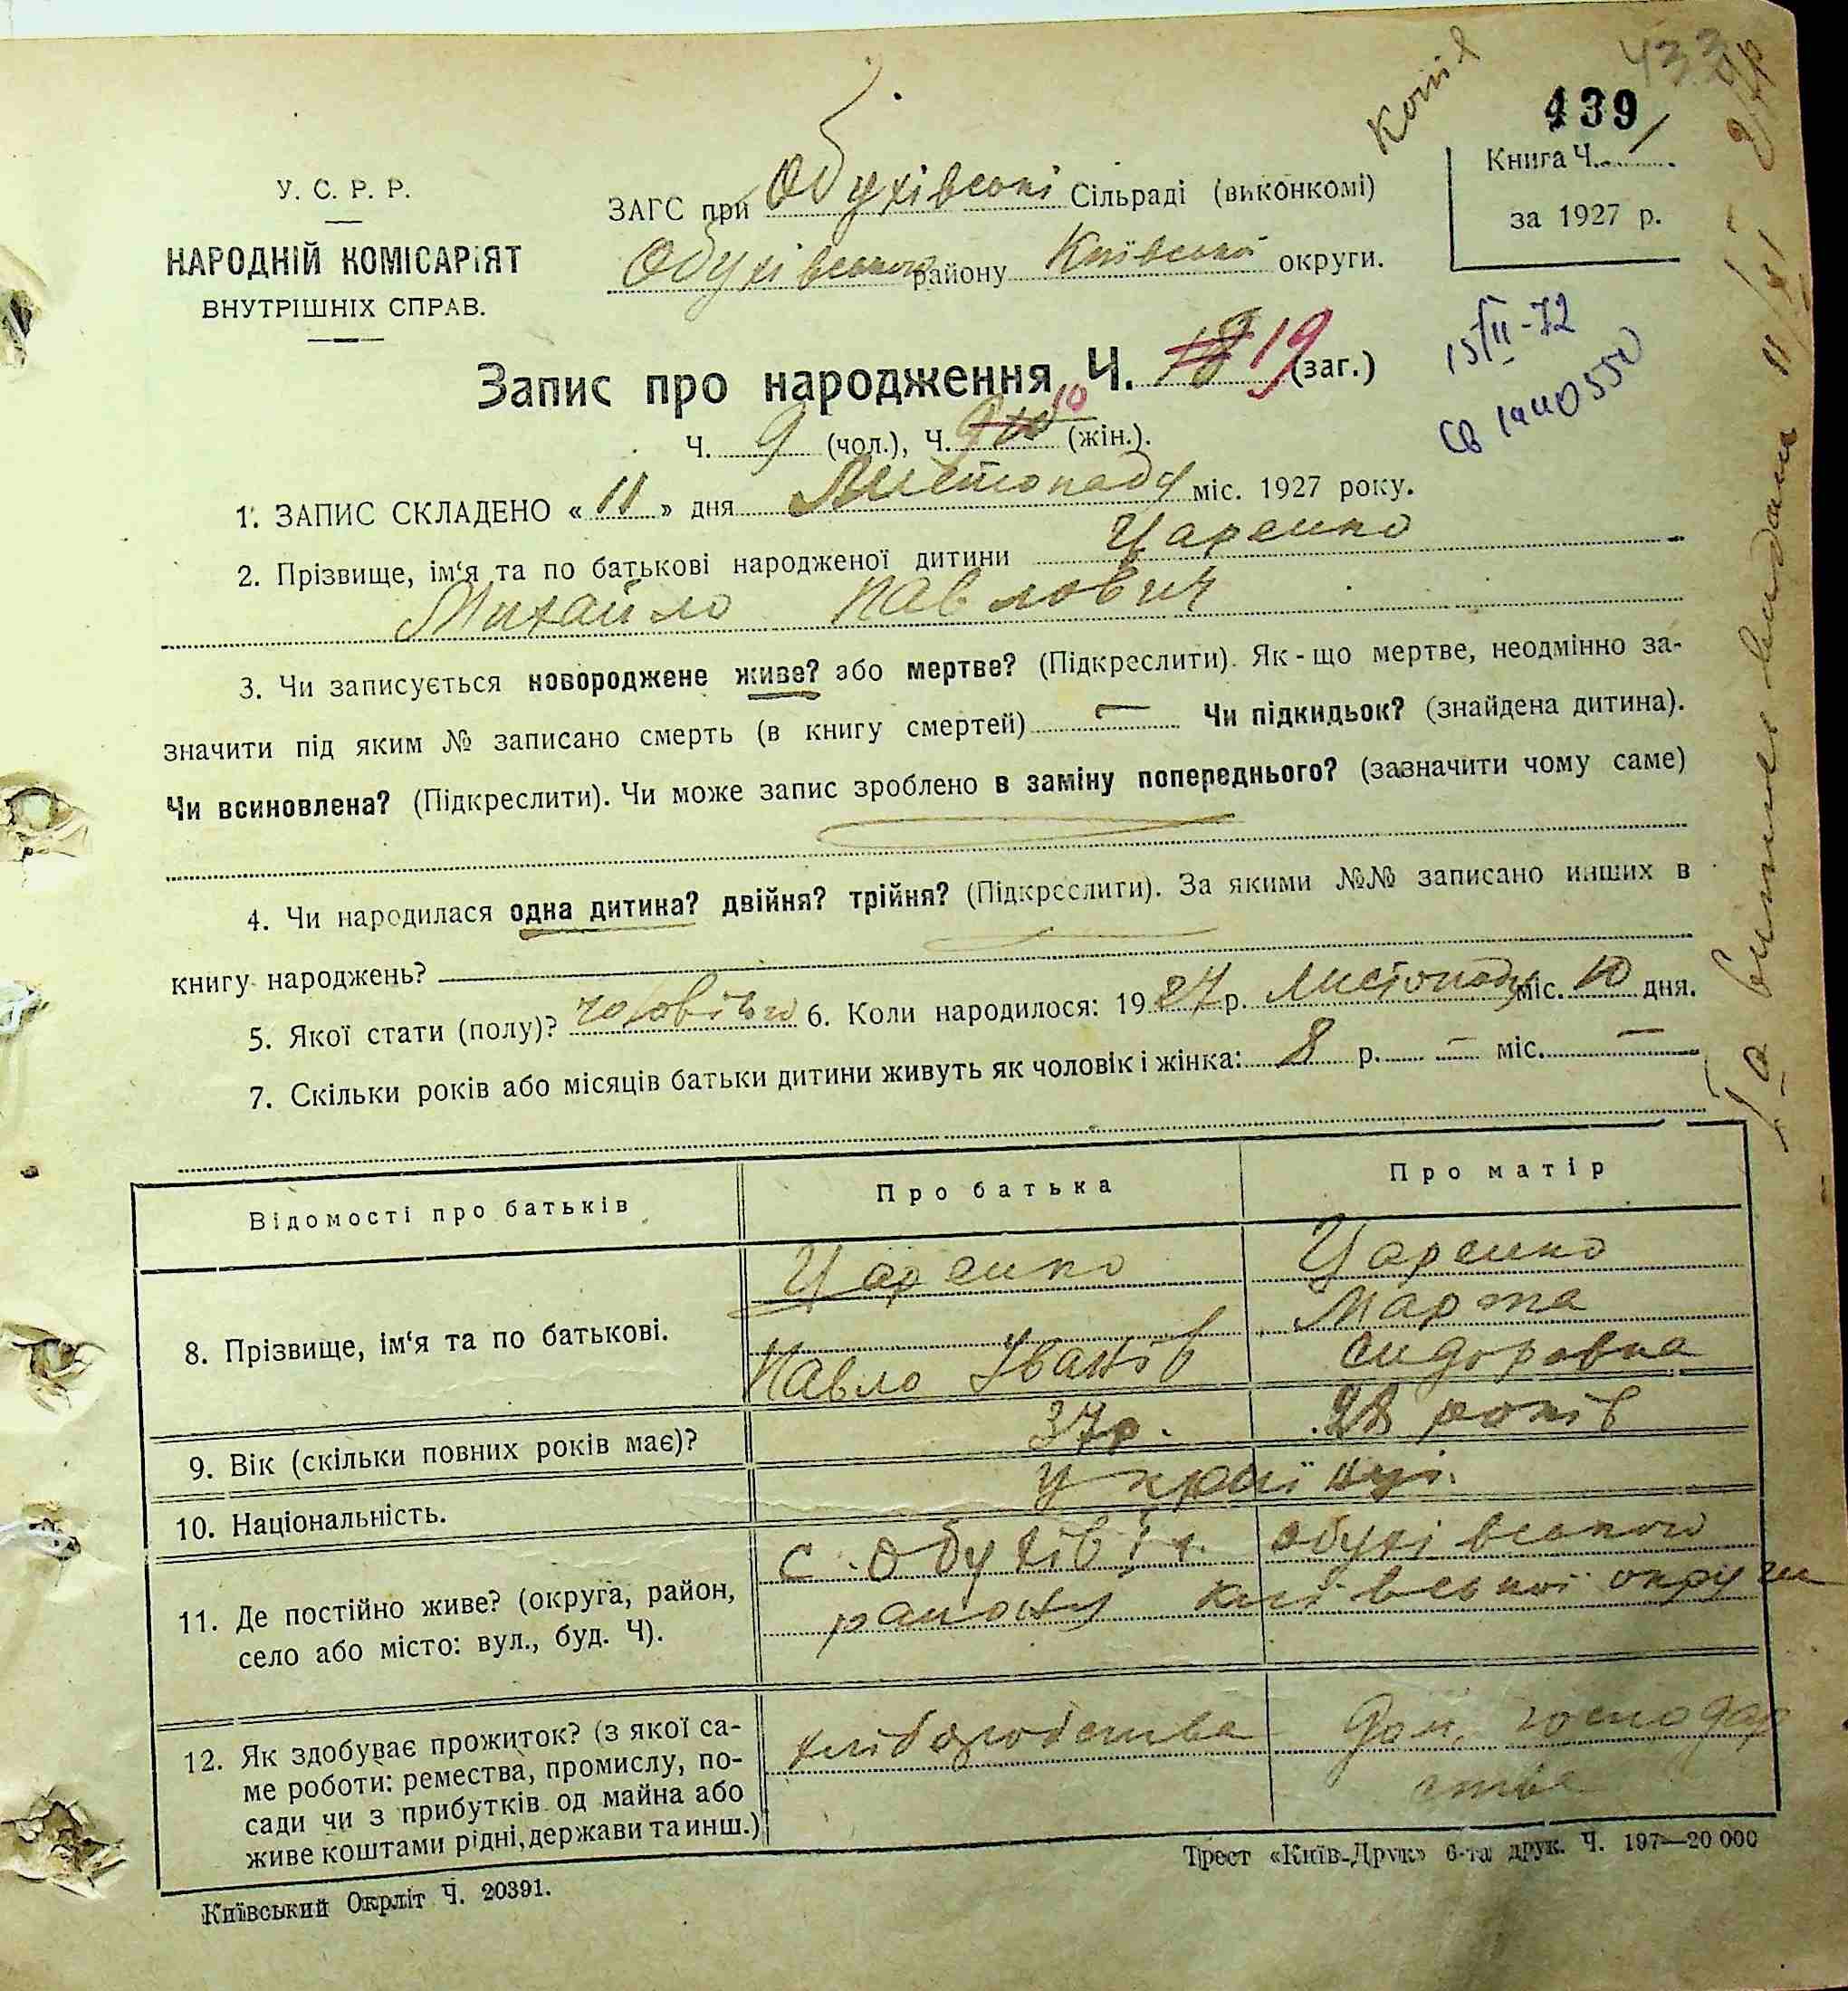 439
Копія
Книга Ч. 1
за 1927 р.
У. С. Р. Р.
НАРОДНІЙ КОМІСАРІЯТ
ВНУТРІШНІХ СПРАВ.
ЗАГС при Обухівські Сільраді (виконкомі)
Обухівського району Київської округи.
Запис про народження Ч. 18 19 (заг.)
Ч. 9 (чол.), Ч. 9 10 (жін.).
15/II-72
1. ЗАПИС СКЛАДЕНО « 11 » дня Листопаду міс. 1927 року.
2. Прізвище, ім‘я та по батькові народженої дитини Царенко
Михайло Павлович
3. Чи записується новороджене живе? або мертве? (Підкреслити). Як-що мертве, неодмінно за-
значити під яким № записано смерть (в книгу смертей) — Чи підкидьок? (знайдена дитина).
Чи всиновлена? (Підкреслити). Чи може запис зроблено в заміну попереднього? (зазначити чому саме)
4. Чи народилася одна дитина? двійня? трійня? (Підкреслити). За якими №№ записано инших в
книгу народжень?
5. Якої стати (полу)? чоловічої 6. Коли народилося: 1927 р. Листопаду міс. 10 дня.
7. Скільки років або місяців батьки дитини живуть як чоловік і жінка: 8 р. — міс. —
Відомості про батьків Про батька Про матір
8. Прізвище, ім‘я та по батькові. Царенко Павло Іванів Царенко Марта Сидоровна
9. Вік (скільки повних років має)? 37р. 28 років
10. Національність. Українці.
11. Де постійно живе? (округа, район,
село або місто: вул., буд. Ч).
с. Обухів Обухівського
району Київської округи
12. Як здобуває прожиток? (з якої са-
ме роботи: ремества, промислу, по-
сади чи з прибутків од майна або
живе коштами рідні, держави та инш.)
хліборобства Дом. господар
ства
Київський Окрліт Ч. 20391.
Трест «Київ-Друк» 6-та друк. Ч. 197—20 000